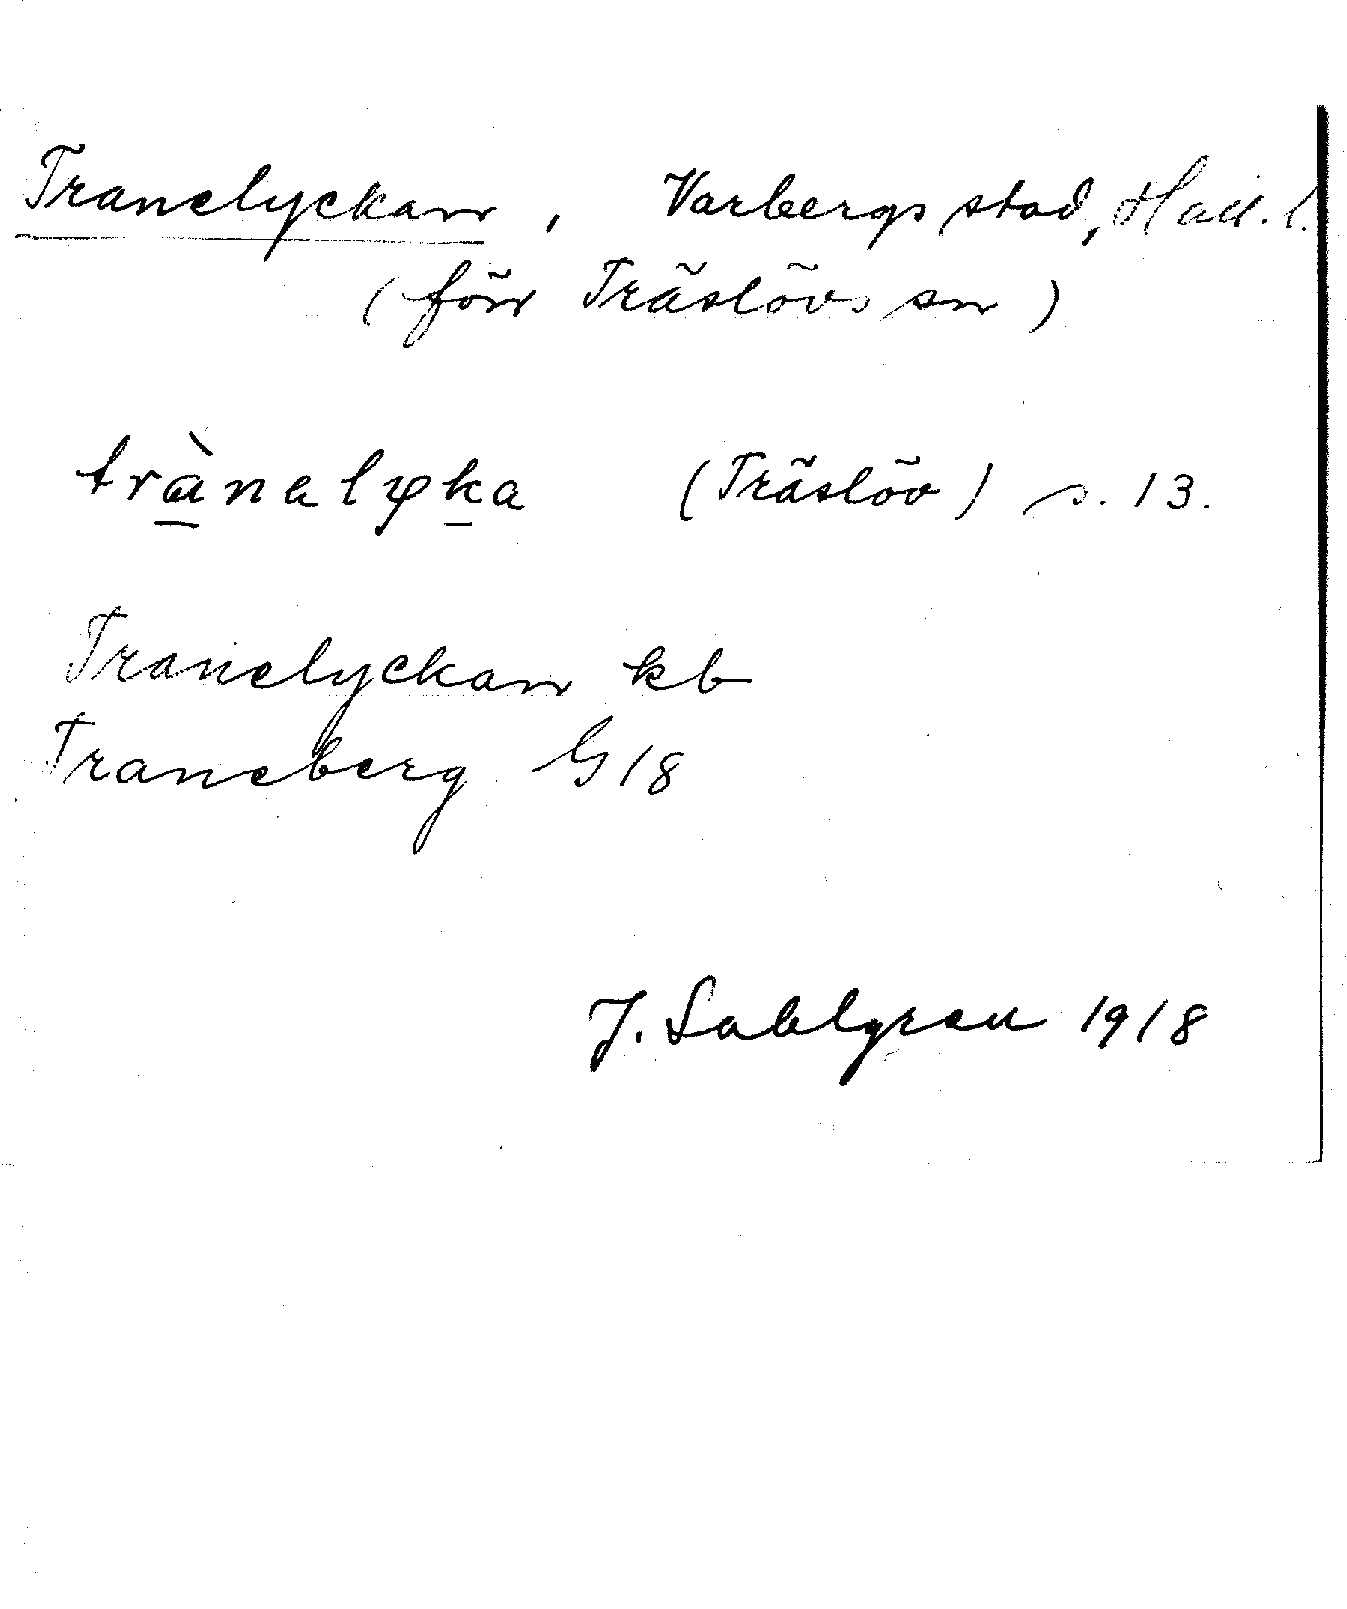 Tranelyckan, Varbergs stad, Hall. l.
(förr Träslövs sn)
trànalyka (Träslöv) s. 13.
Tranelyckan kb
Traneberg G 18
J. Sahlgren 1918